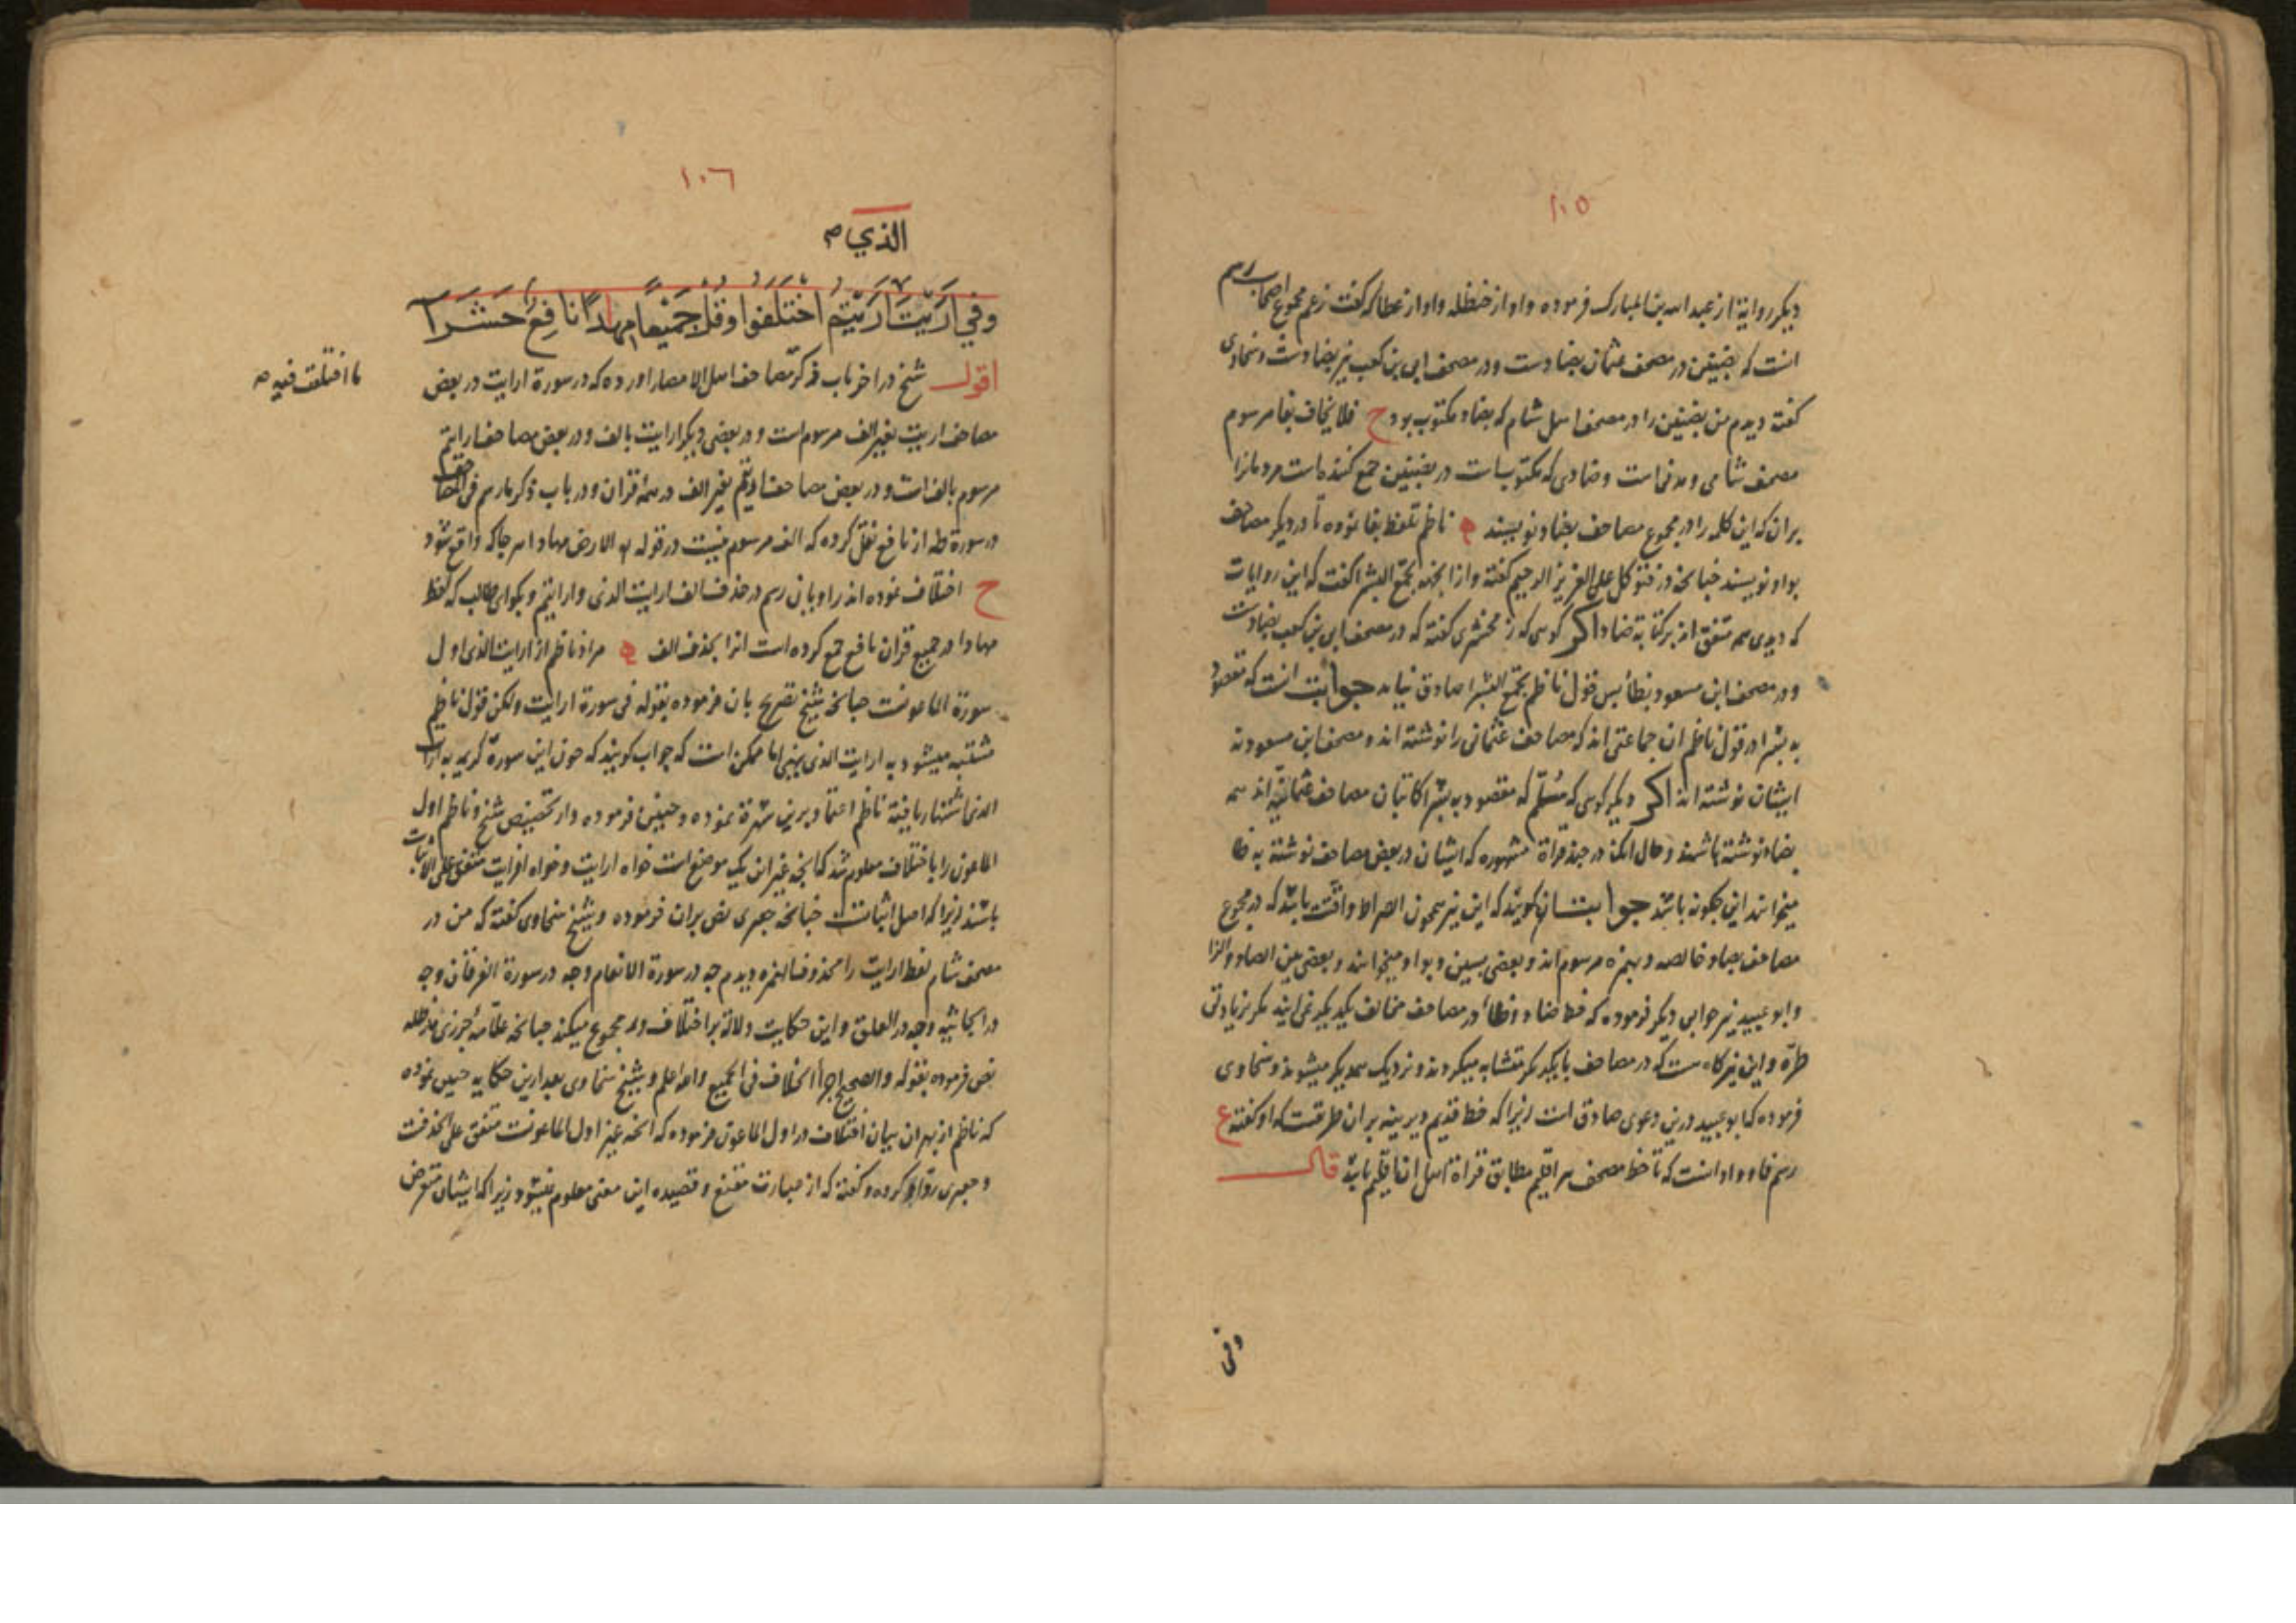 ١٠٥
دیکر روایة از عبد الله بن المبارک فرموده و او از حنظله و او از عطا که کفت زعم مجموع اصحاب رسم
انست که بضنین در مصحف عثمان بضادست و در مصحف ابی بن کعب نیز بضادست و سخاوی
کفته دیدم من بضنین را در مصحف اهل شام که بضاد مکتوب بود ح فلا یخاف بفا مرسوم
مصحف شامی و مدنی است و ضادی که مکتوبست در بضنین جمع کننده است مردمانرا
بران که این کلمه را در مجموع مصاحف بضاد نویسند ناظم تلفظ بفا نموده تا در دیکر مصاحف
بواو نویسند چنانچه در فتوکل علی العزیز الرحیم کفته و از انجهه تجمع البشرا کفت که این روایات
که دیدی همه متفق اند بر کتابة ضاد اکر کوی که زمخشری کفته که در مصحف ابی بن کعب بضادست
و در مصحف ابن مسعود بظا پس قول ناظم تجمع البشرا صادق نیاید جوابت انست که مقصود
به بشرا در قول ناظم ان جماعتی اند که مصاحف عثمانی را نوشته اند و مصحف ابن مسعود نه
ایشان نوشته اند اکر دیکر کوی که مسلم که مقصود به بشرا کاتبان مصاحف عثمانیه اند همه
بضاد نوشته باشند و حال انکه در چند قراة مشهوره که ایشان در بعض مصاحف نوشته به ظا
میخوانند این چکونه باشد جوابت ان کویند که این نیز همچون الصراط واقعت باشد که در مجموع
مصاحف بصاد خالصه و بهمزه مرسوم اند و بعضی بسین و بواو میخوانند و بعضی بین الصاد والزا
و ابو عبید نیز جوابی دیکر فرموده که خط ضاد و ظا در مصاحف مخالف یکدیکر نمی ایند مکر بزیادتی
طره و این نیز کاهست که در مصاحف بایکدیکر متشابه میکردند و نزدیک همدیکر میشوند و سخاوی
فرموده که ابو عبید درین دعوی صادق است زیرا که خط قدیم دیرینه بر ان طریقست که او کفته ع
رسم فا و واو انست که تا خط مصحف هر اقلیم مطابق قراة اهل ان اقلیم باشد قال
وفی
١٠٦
الذي ص
وفي اريت اريتم اختلفوا وقل جميعا مهادا نافع حشرا
اقول شیخ در اخر باب ذکر مصاحف اهل الامصار اورده که در سورة ارایت در بعض
ما اختلفت فیه ص
مصاحف اریت بغیر الف مرسوم است و در بعضی دیکر ارایت بالف و در بعض مصاحف ارایتم
مرسوم بالف است و در بعض مصاحف اریتم بغیر الف در همه قران و در باب ذکر ما رسم فی المصاحف
در سورة طه از نافع نقل کرده که الف مرسوم نیست در قوله الارض مهادا هر جا که واقع شود
ح اختلاف نموده اند راویان رسم در حذف الف ارایت الذی و ارایتم و بکو ای طالب که لفظ
مهادا در جمیع قران نافع جمع کرده است انرا بحذف الف مراد ناظم از ارایت الذی اول
سورة الماعونست چنانچه شیخ تصریح بان فرموده بقوله فی سورة ارایت ولکن قول ناظم
مشتبه میشود به ارایت الذی ینهی اما ممکن است که جواب کویند که چون این سورة کریمه به ارایت
الذی اشتهار یافته ناظم اعتماد برین شهرة نموده و چنین فرموده و از تخصیص شیخ و ناظم اول
الماعون را باختلاف معلوم شد که انچه غیر ان یک موضع است خواه ارایت و خواه افرایت متفق علی الاثبات
باشند زیرا که اصل اثباتست چنانچه جعبری نص بران فرموده و شیخ سخاوی کفته که من در
مصحف شام لفظ ارایت را محذوف الهمزه دیدم چه در سورة الانعام و چه در سورة الفرقان و چه
در الجاثیه و چه در العلق و این حکایت دلالة بر اختلاف در مجموع میکند چنانچه علامه جزری مد ظله
نص فرموده بقوله والصحیح اجراء الخلاف فی الجمیع والله اعلم و شیخ سخاوی بعد ازین حکایه چنین نموده
که ناظم از بهر ان بیان اختلاف در اول الماعون فرموده که انچه غیر اول الماعونست متفق علی الحذفست
و جعبری رد او کرده و کفته که از عبارت مقنع و قصیده این معنی معلوم نمیشود زیرا که ایشان متعرض